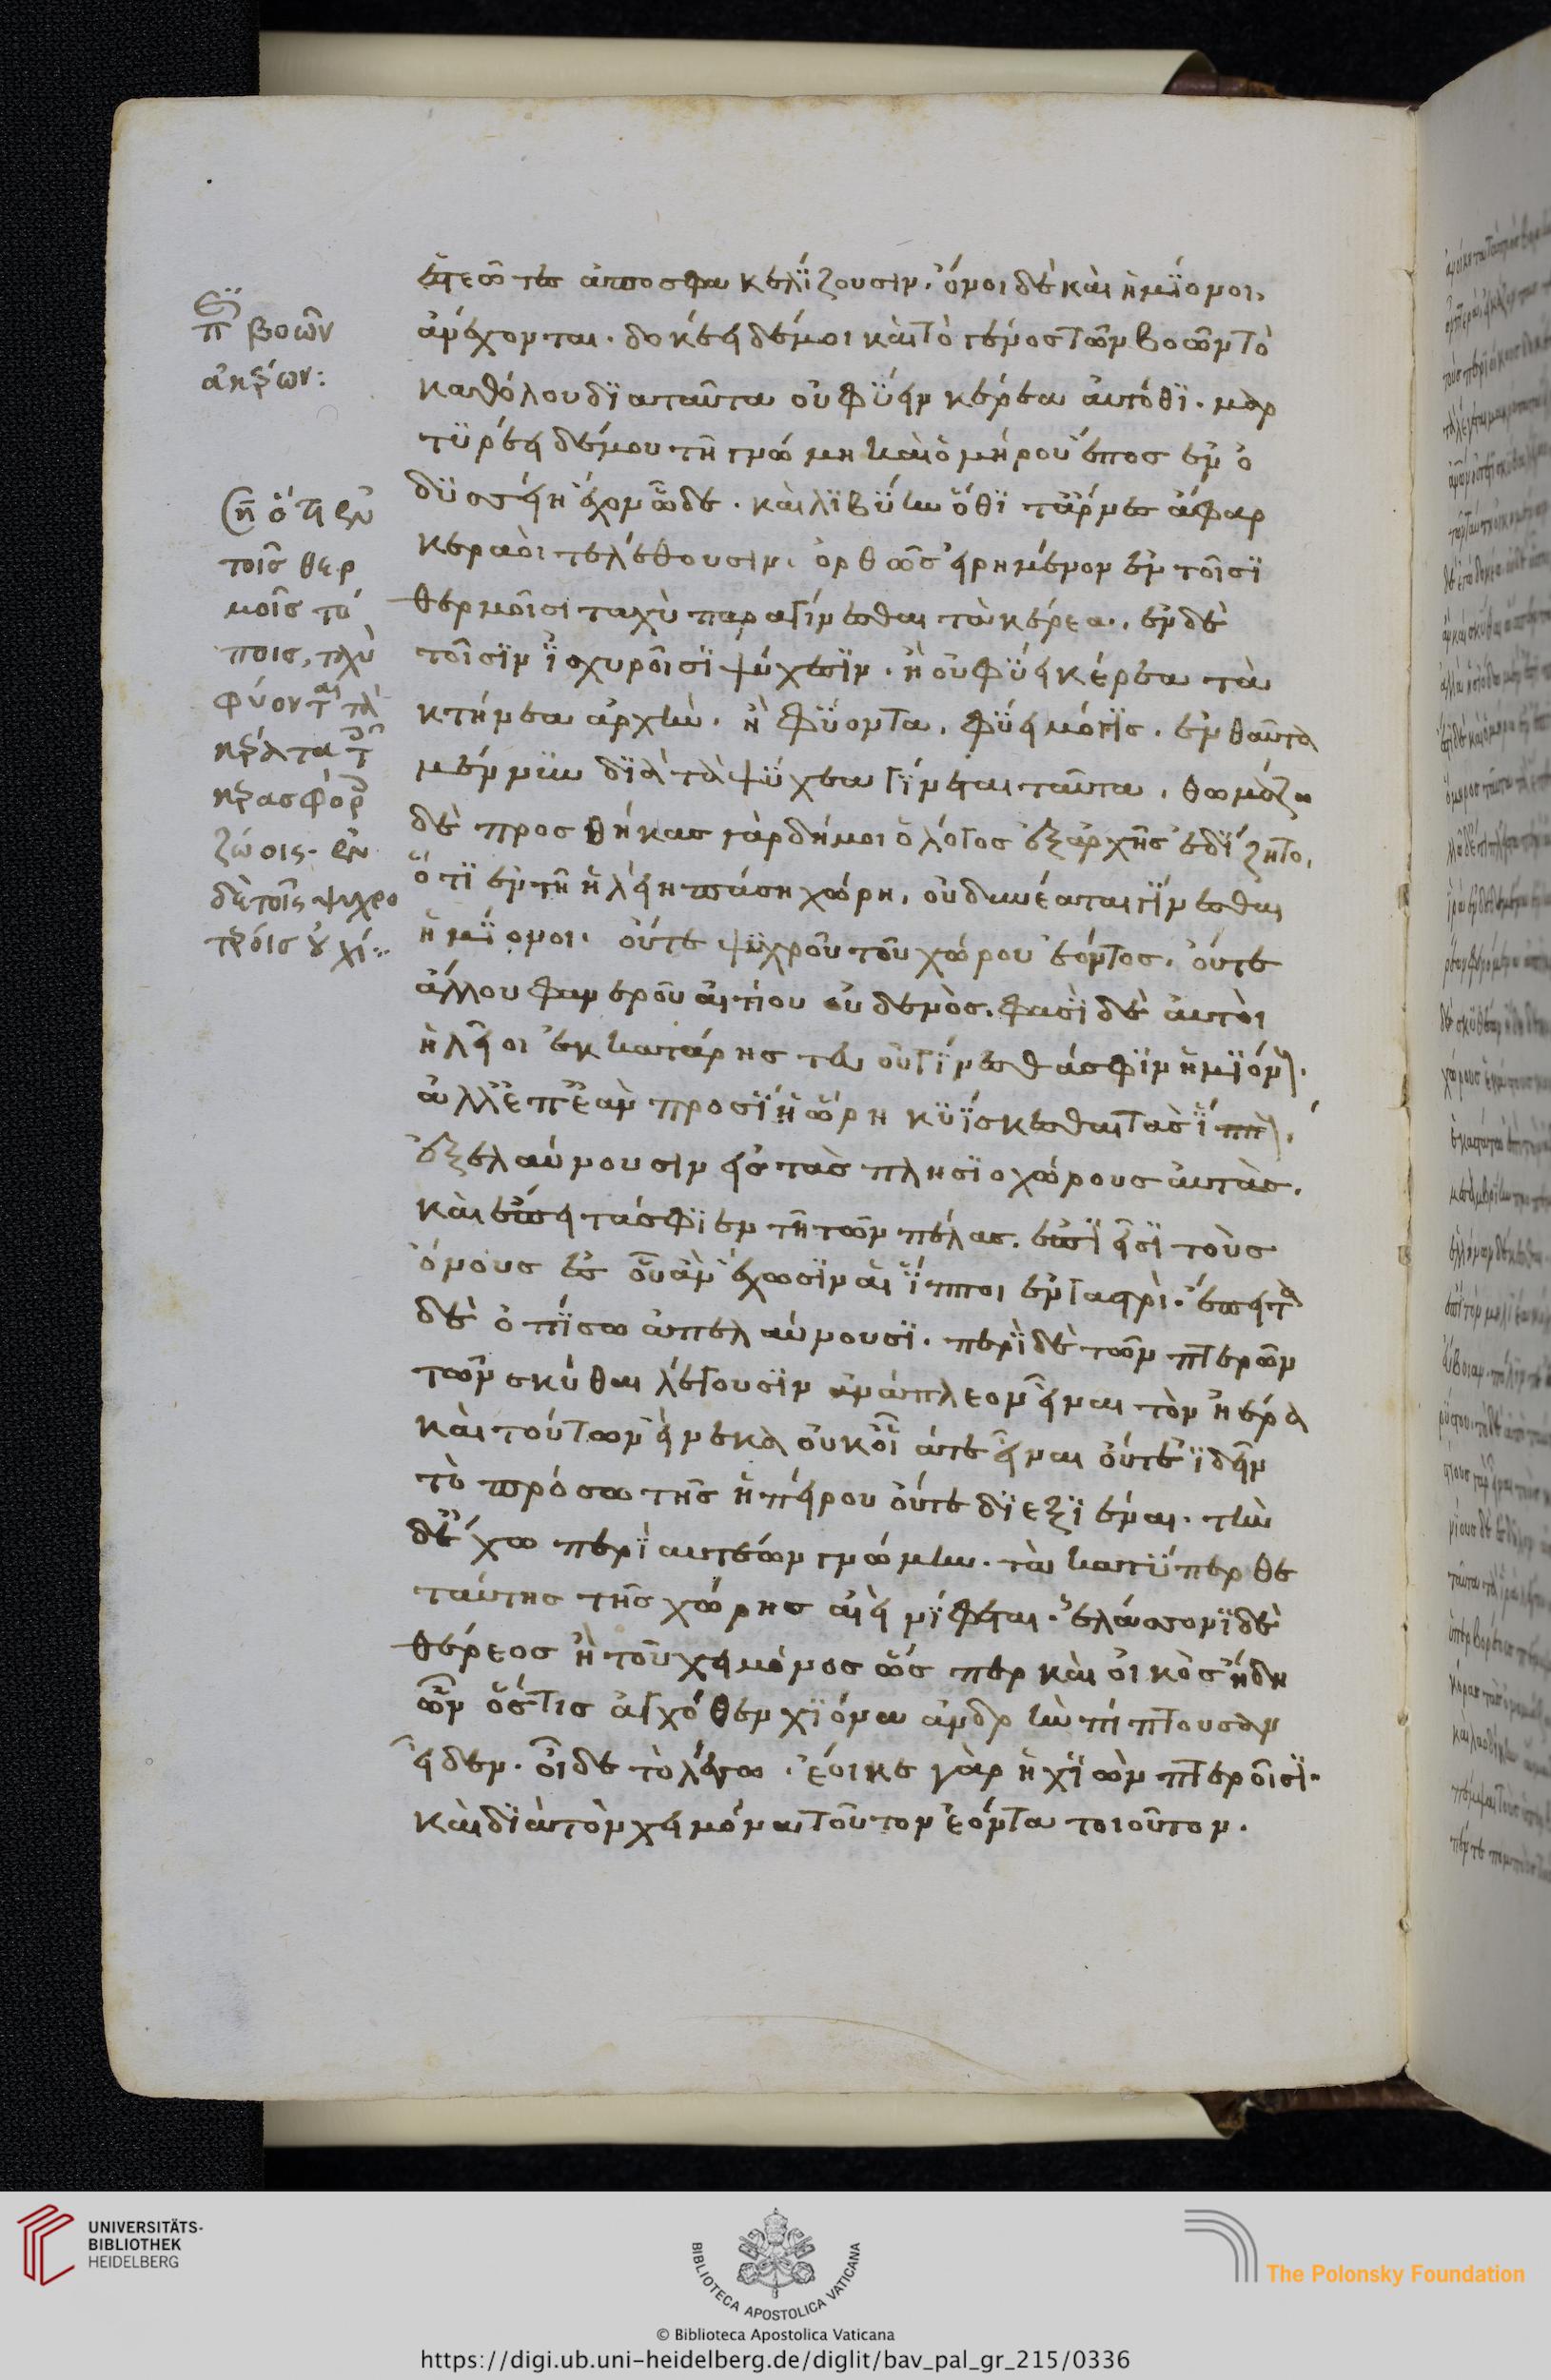 π βοῶν
ἀκερέων:
ση ὅτι ἐν
τοῖς θερ
μοῖς τό
ποις, ταχὺ
φύοντ τὰ
κέρατα τ
κερασφόρ
ζώοις· ἐν
δὲ τοῖς ψυχρο
τέροις οὐχί:
ἑστεῶτες ἀποσφακελίζουσιν. ὄνοι δὲ καὶ ἡμίονοι,
ἀνέχονται. δοκέει δέ μοι καὶ τὸ γένος τῶν βοῶν τὸ
κατθόλου διὰ ταῦτα οὐ φύειν κέρεα αὐτόθι. μαρ
τυρέει δέ μου τῆ γνώμη καὶ ὁμήρου ἔπος ἐν ὀ
δυσσείη ἔχον ὧδε. καὶ λιβύην ὅθι τ' ἄρνες ἄφαρ
κεραοὶ τελέθουσιν. ὀρθῶς εἰρημένον ἐν τοῖσι
θερμοῖσι ταχὺ παραγίνεσθαι τὰ κέρεα. ἐν δὲ
τοῖσιν ἰσχυροῖσι ψύχεσιν. ἢ οὐ φύει κέρεα τὰ
κτήνεα ἀρχὴν. ἢ φύοντα, φύει μόγις. ἐνθαῦτα
μέν νυν διὰ τὰ ψύχεα γίνεται ταῦτα, θωμάζω
δὲ προσθήκας γὰρ δή μοι ὁ λόγος ἐξ ἀρχῆς ἐδίζητο,
ὅτι ἐν τῆ ἠλείη πάση χώρη, οὐ δυνέαται γίνεσθαι
ἡμίονοι. οὔτε ψυχροῦ τοῦ χώρου ἐόντος, οὔτε
ἄλλου φανεροῦ αἰτίου οὐδενὸς. φασὶ δὲ αὐτοὶ
ἠλεῖοι ἐκ κατάρης τευ οὐ γίνεσθαί σφιν ἡμιόν.
ἀλλ' ἐπεὰν προσίη ἡ ὥρη κυΐσκεσθαι τὰς ἵππ,
ἐξελαύνουσιν ἐς τὰς πλησιοχώρους αὐτὰς.
καὶ ἔπειτά σφι ἐν τῆ τῶν πέλας. ἐπιεῖσι τοὺς
ὄνους ἐς οὗ ἂν ἔχωσιν αἱ ἵπποι ἐν γαστρὶ. ἔπειτα
δὲ ὀπίσω ἀπελαύνουσι. περὶ δὲ τῶν πτερῶν
τῶν σκύθαι λέγουσιν ἀνάπλεον εἶναι τὸν ἠέρα
καὶ τούτων εἵνεκα οὐκ οἷά τε εἶναι οὔτε ἰδεῖν
τὸ πρόσω τῆς ἠπείρου οὔτε διεξιέναι. τὴν
δ' ἔχω περὶ αὐτέων γνώμην. τὰ κατύπερθε
ταύτης τῆς χώρης αἰεὶ νίφεται. ἐλάσσονι δὲ
θέρεος ἢ τοῦ χειμῶνος ὥσπερ καὶ οἰκὸς ἤδη
ὦν ὅστις ἀγχόθεν χιόνα ἀνδρὴν πίπτουσαν
εἶδεν. οἶδε τὸ λέγω. ἔοικε γὰρ ἡ χιὼν πτεροῖσι.
καὶ διὰ τὸν χειμῶνα τοῦτον ἐόντα τοιοῦτον.
UNIVERSITÄTS-
BIBLIOTHEK
HEIDELBERG
BIBLIOTECA APOSTOLICA VATICANA
The Polonsky Foundation
© Biblioteca Apostolica Vaticana
https://digi.ub.uni-heidelberg.de/diglit/bav_pal_gr_215/0336